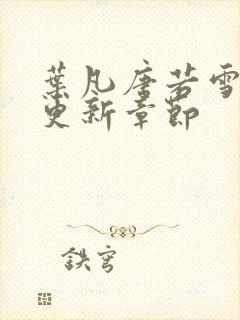 葉凡唐若雪
更新章節
鉄穹